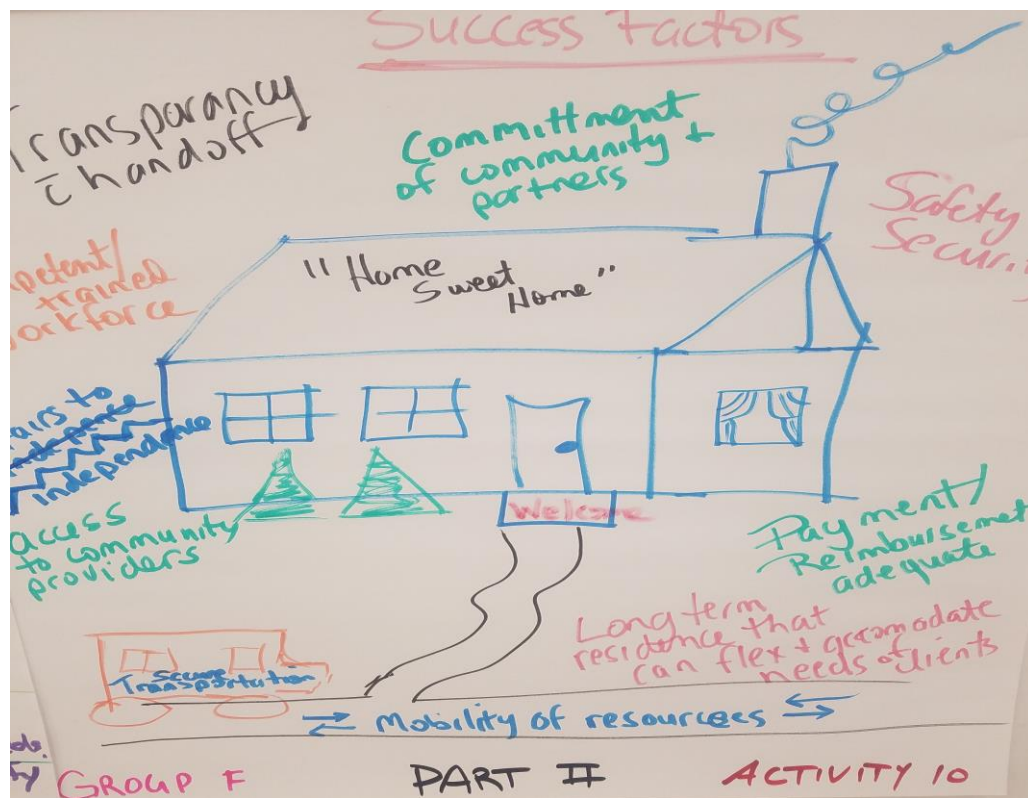 Success Factors
Transparancy
c̄ handoff
Committment
of community +
partners
Safety
Securit
petent/
trained
workforce
"Home
Sweet
Home"
airs to
Independence
access
to community
providers
Welcome
Payment/
Reimbursement
adequate
Long term
residence that
can flex + accomodate
needs of clients
Secure
Transportation
⇌ Mobility of resources ⇌
GROUP F
PART II
ACTIVITY 10